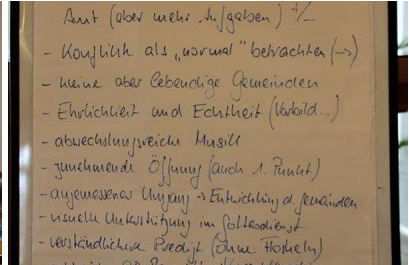 Amt (aber mehr Aufgaben) +/-
- Konflikte als „normal" betrachten (→)
- kleine aber lebendige Gemeinden
- Ehrlichkeit und Echtheit (Vorbild...)
- abwechslungsreiche Musik
- zunehmende Öffnung (auch 1. Punkt)
- angemessener Umgang → Entwicklung d. Gemeinden
- visuelle Unterstützung im Gottesdienst
- verständlichere Predigt (ohne Floskeln)